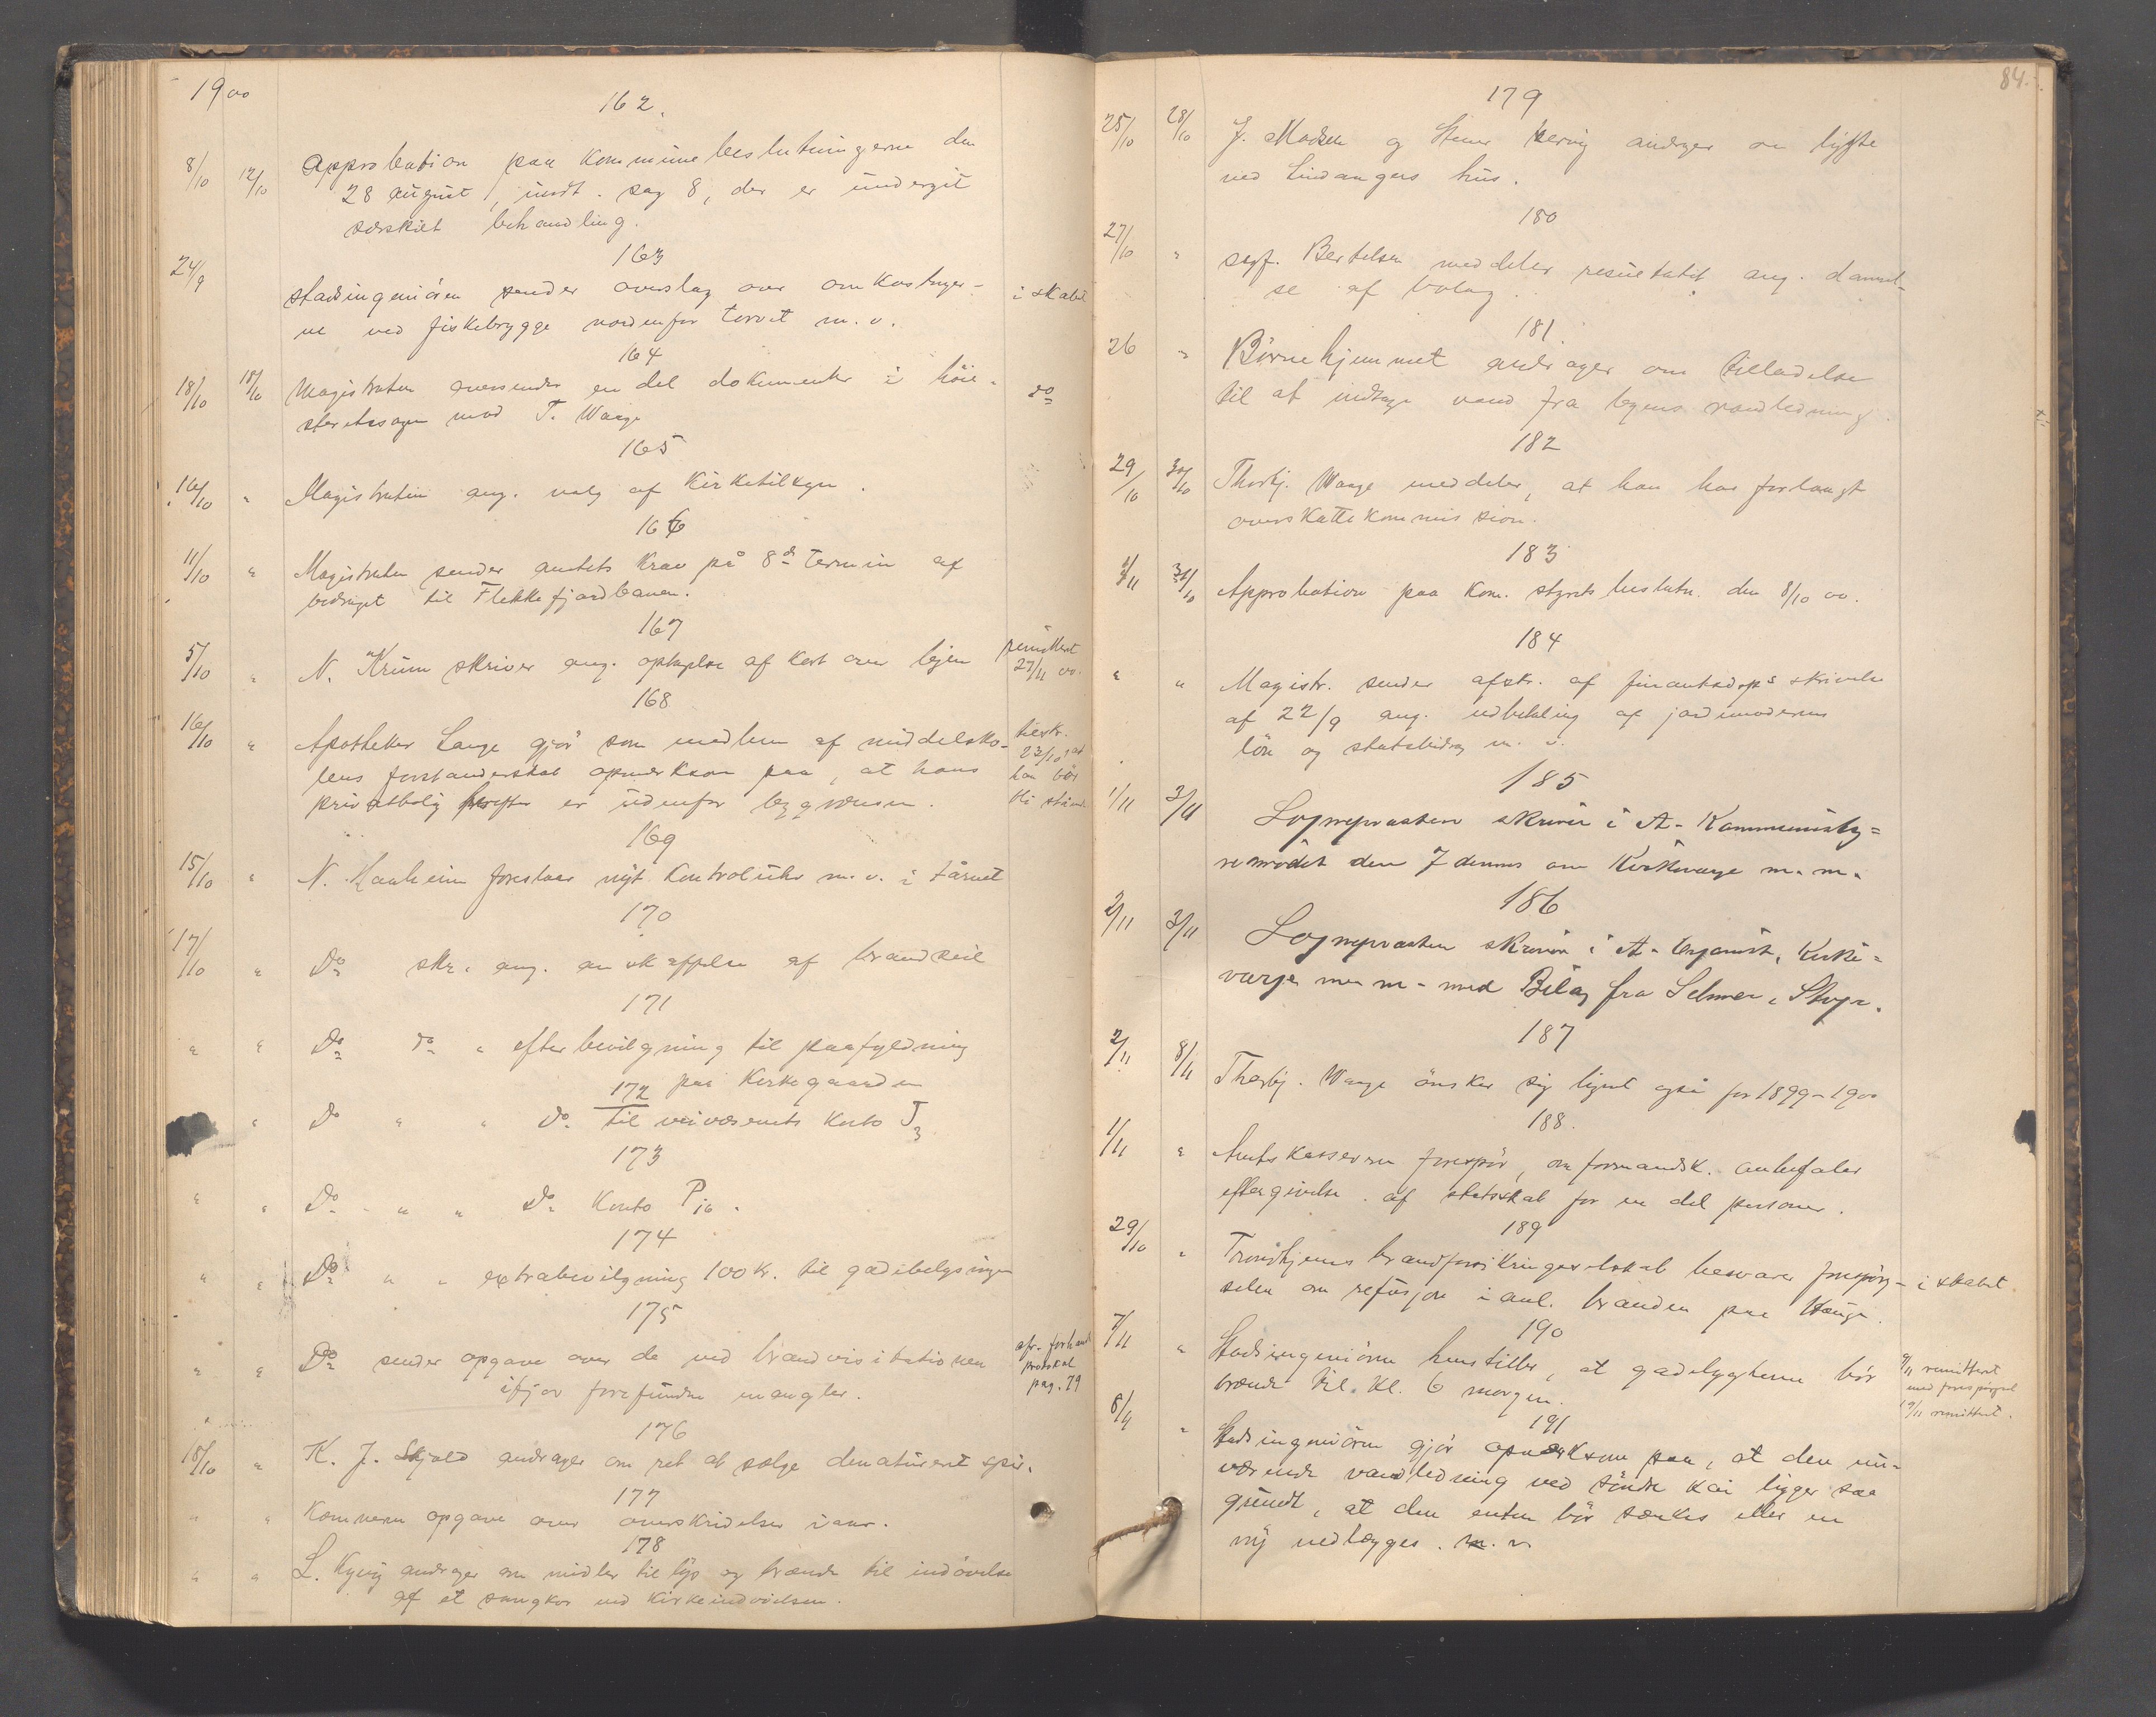 1900
162.
8/10 12/10 Approbation paa kommunebeslutningerne den
28 august, undt. sag 8, der er undergit
særskilt behandling.
163
24/9 Stadsingeniören sender overslag over omkostninger-
ne ved fiskebrygge nordenfor torvet m. v. i skabet
164
18/10 18/10 Magistraten oversender en del dokumenter i höie-
steretssagen mod T. Waage do
165
16/10 " Magistraten ang. valg af Kirketilsyn.
166
11/10 " Magistraten sender amtets krav på 8de termin af
bidraget til Flekkefjordbanen.
167
5/10 " N. Krum skriver ang. optagelse af kart over byen remittert
27/11 00.
168
16/10 " Apotheker Lange gjör som medlem af middelsko- tilskr.
lens forstanderskab opmerksom paa, at hans 23/10 at
privatbolig herefter er udenfor bygrænsen. han bör
bli stående
169
15/10 " N. Kanheim foreslaar nyt Kontrolluhr m. v. i tårnet
170
17/10 " Do skr. ang. anskaffelse af brandseil
171
" " Do do " efterbevilgning til paafyldning
paa Kirkegaarden
172
" Do " " Do. til veivæsenets konto J3
173
" " Do " " Do Konto P10.
174
" " Do " " extrabevilgning 100 kr. til gadebelysningen
175
" " Do sender opgave over de ved brandvisitationen
ifjor forefundne mangler. afr. forhand
protokol
pag. 79
176
18/10 " K. J. Skjold andrager om ret at sælge denatureret spir.
177
" " Kæmneren opgave over overskridelser iaar.
178
" " L. Kyvig andrager om midler til lys og brænde til indövelse
af et sangkor ved kirkeindvielsen.
84.
179
25/10 28/10 J. Madsen og andrager om lygte
ved Lindangers hus.
180
27/10 " sagf. Bertelsen meddeler resultatet ang. dannel-
se af bolag.
181
26 " Börnehjemmet andrager om tilladelse
til at indtage vand fra byens vandledning.
182
29/10 30/10 Thorbj. Waage meddeler, at han har forlangt
overskattekommission.
183
1/11 31/10 Approbation paa kom. styrets beslutn. den 8/10 00.
184
" " Magistr. sender afskr. af finantsdep's skrivelse
af 22/9 ang. udbetaling af jordmoderens
lön og statsbidrag m. v.
185
1/11 3/11 Sogneprästen skriver i A. Kommunesty=
remödet den 7 dennes om Kirkeværge m. m.
186
2/11 3/11 Sogneprästen skriver i A. Organist, Kirke=
værge m. m. med Bilag fra Selmer,
187
2/11 8/11 Thorbj. Waage önsker sig lignet også for 1899-1900
188.
1/11 " Amtskassereren forespör, om formandsk. anbefaler
eftergivelse af statsskat for en del personer.
189
29/10 " Trondhjems brandforsikringsselskab besvarer forespörg- i skabet
selen om refusjon i anl. branden paa Hauge.
190
7/11 " Stadsingeniören henstiller, at gadelygterne bör
brænde til kl. 6 morgen. 9/11 remittert
med forespörgsel
19/11 remittert.
191
8/11 " Stadsingeniören gjör opmærksom paa, at den nu-
værende vandledning ved söndre kai ligger saa
grundt, at den enten bör sænkes eller en
ny nedlægges. m. v.